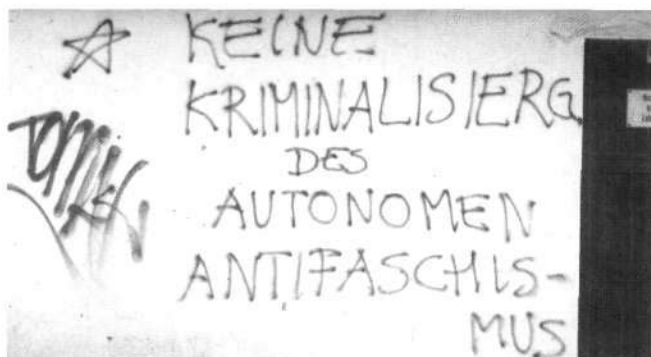 KEINE
KRIMINALISIERG.
DES
AUTONOMEN
ANTIFASCHIS-
MUS